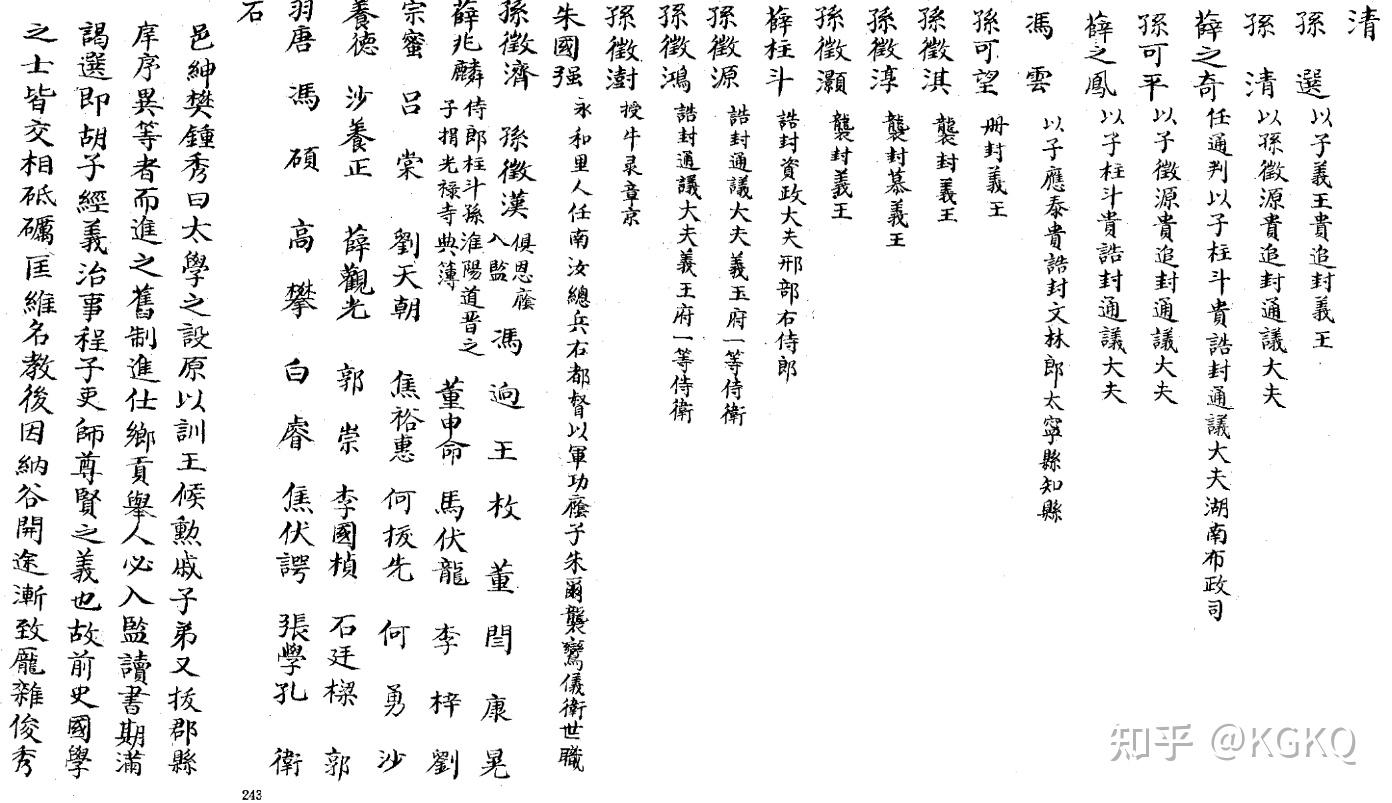 清
孫選以子義王貴追封義王
孫清以孫徵源貴追封通議大夫
薛之奇任通判以子柱斗貴誥封通議大夫湖南布政司
孫可平以子徵源貴追封通議大夫
薛之鳳以子柱斗貴誥封通議大夫
馮雲以子應泰貴誥封文林郎太寧縣知縣
孫可望册封義王
孫徵淇襲封義王
孫徵淳襲封慕義王
孫徵灝襲封義王
薛柱斗誥封資政大夫邢部右侍郎
孫徵源誥封通議大夫義王府一等侍衛
孫徵鴻誥封通議大夫義王府一等侍衛
孫徵澍授牛录章京
朱國强永和里人任南汝總兵右都督以軍功廕子朱爾襲鸞儀衛世職
孫徵濟孫徵漢俱恩廕入監馮逈王枚董閆康晃
薛兆麟侍郎柱斗孫淮陽道晋之子捐光禄寺典簿董申命馬伏龍李梓劉
宗蜜吕棠劉天朝焦裕惠何拔先何勇沙
養德沙養正薛觀光郭崇李國楨石廷樑郭
羽唐馮碩高攀白睿焦伏諤張學孔衛
石
邑紳樊鍾秀曰太學之設原以訓王候勲戚子弟又拔郡縣
庠序異等者而進之舊制進仕鄉貢舉人必入監讀書期滿
謁選即胡子經義治事程子更師尊賢之義也故前史國學
之士皆交相砥礪匡維名教後因納谷開途漸致龐雜俊秀
243
知乎 @KGKQ